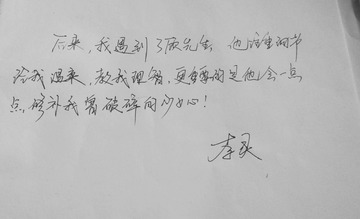 后来，我遇到了顾先生，他注重细节
给我温柔，教我理智，更重要的是他会一点
点修补我曾破碎的少女心！
李灵